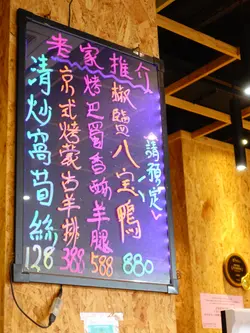 老家烤推介
椒鹽八宝鴨 880
請預定
巴蜀香酥羊腿 588
京式烤蒙古羊排 388
清炒窩荀絲 128